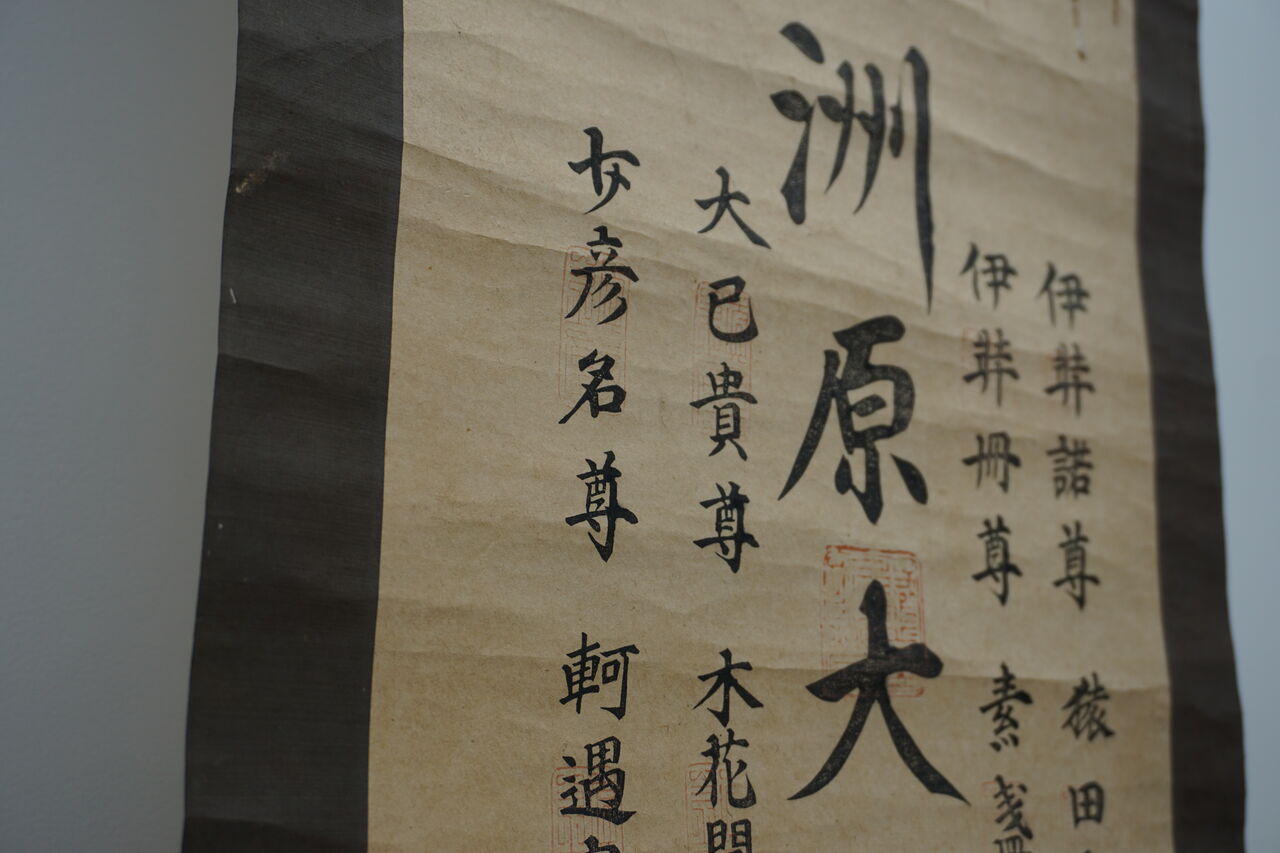 伊弉諾尊 猿田
伊弉冊尊 素盞
洲原大
大已貴尊 木花開
少彦名尊 軻遇